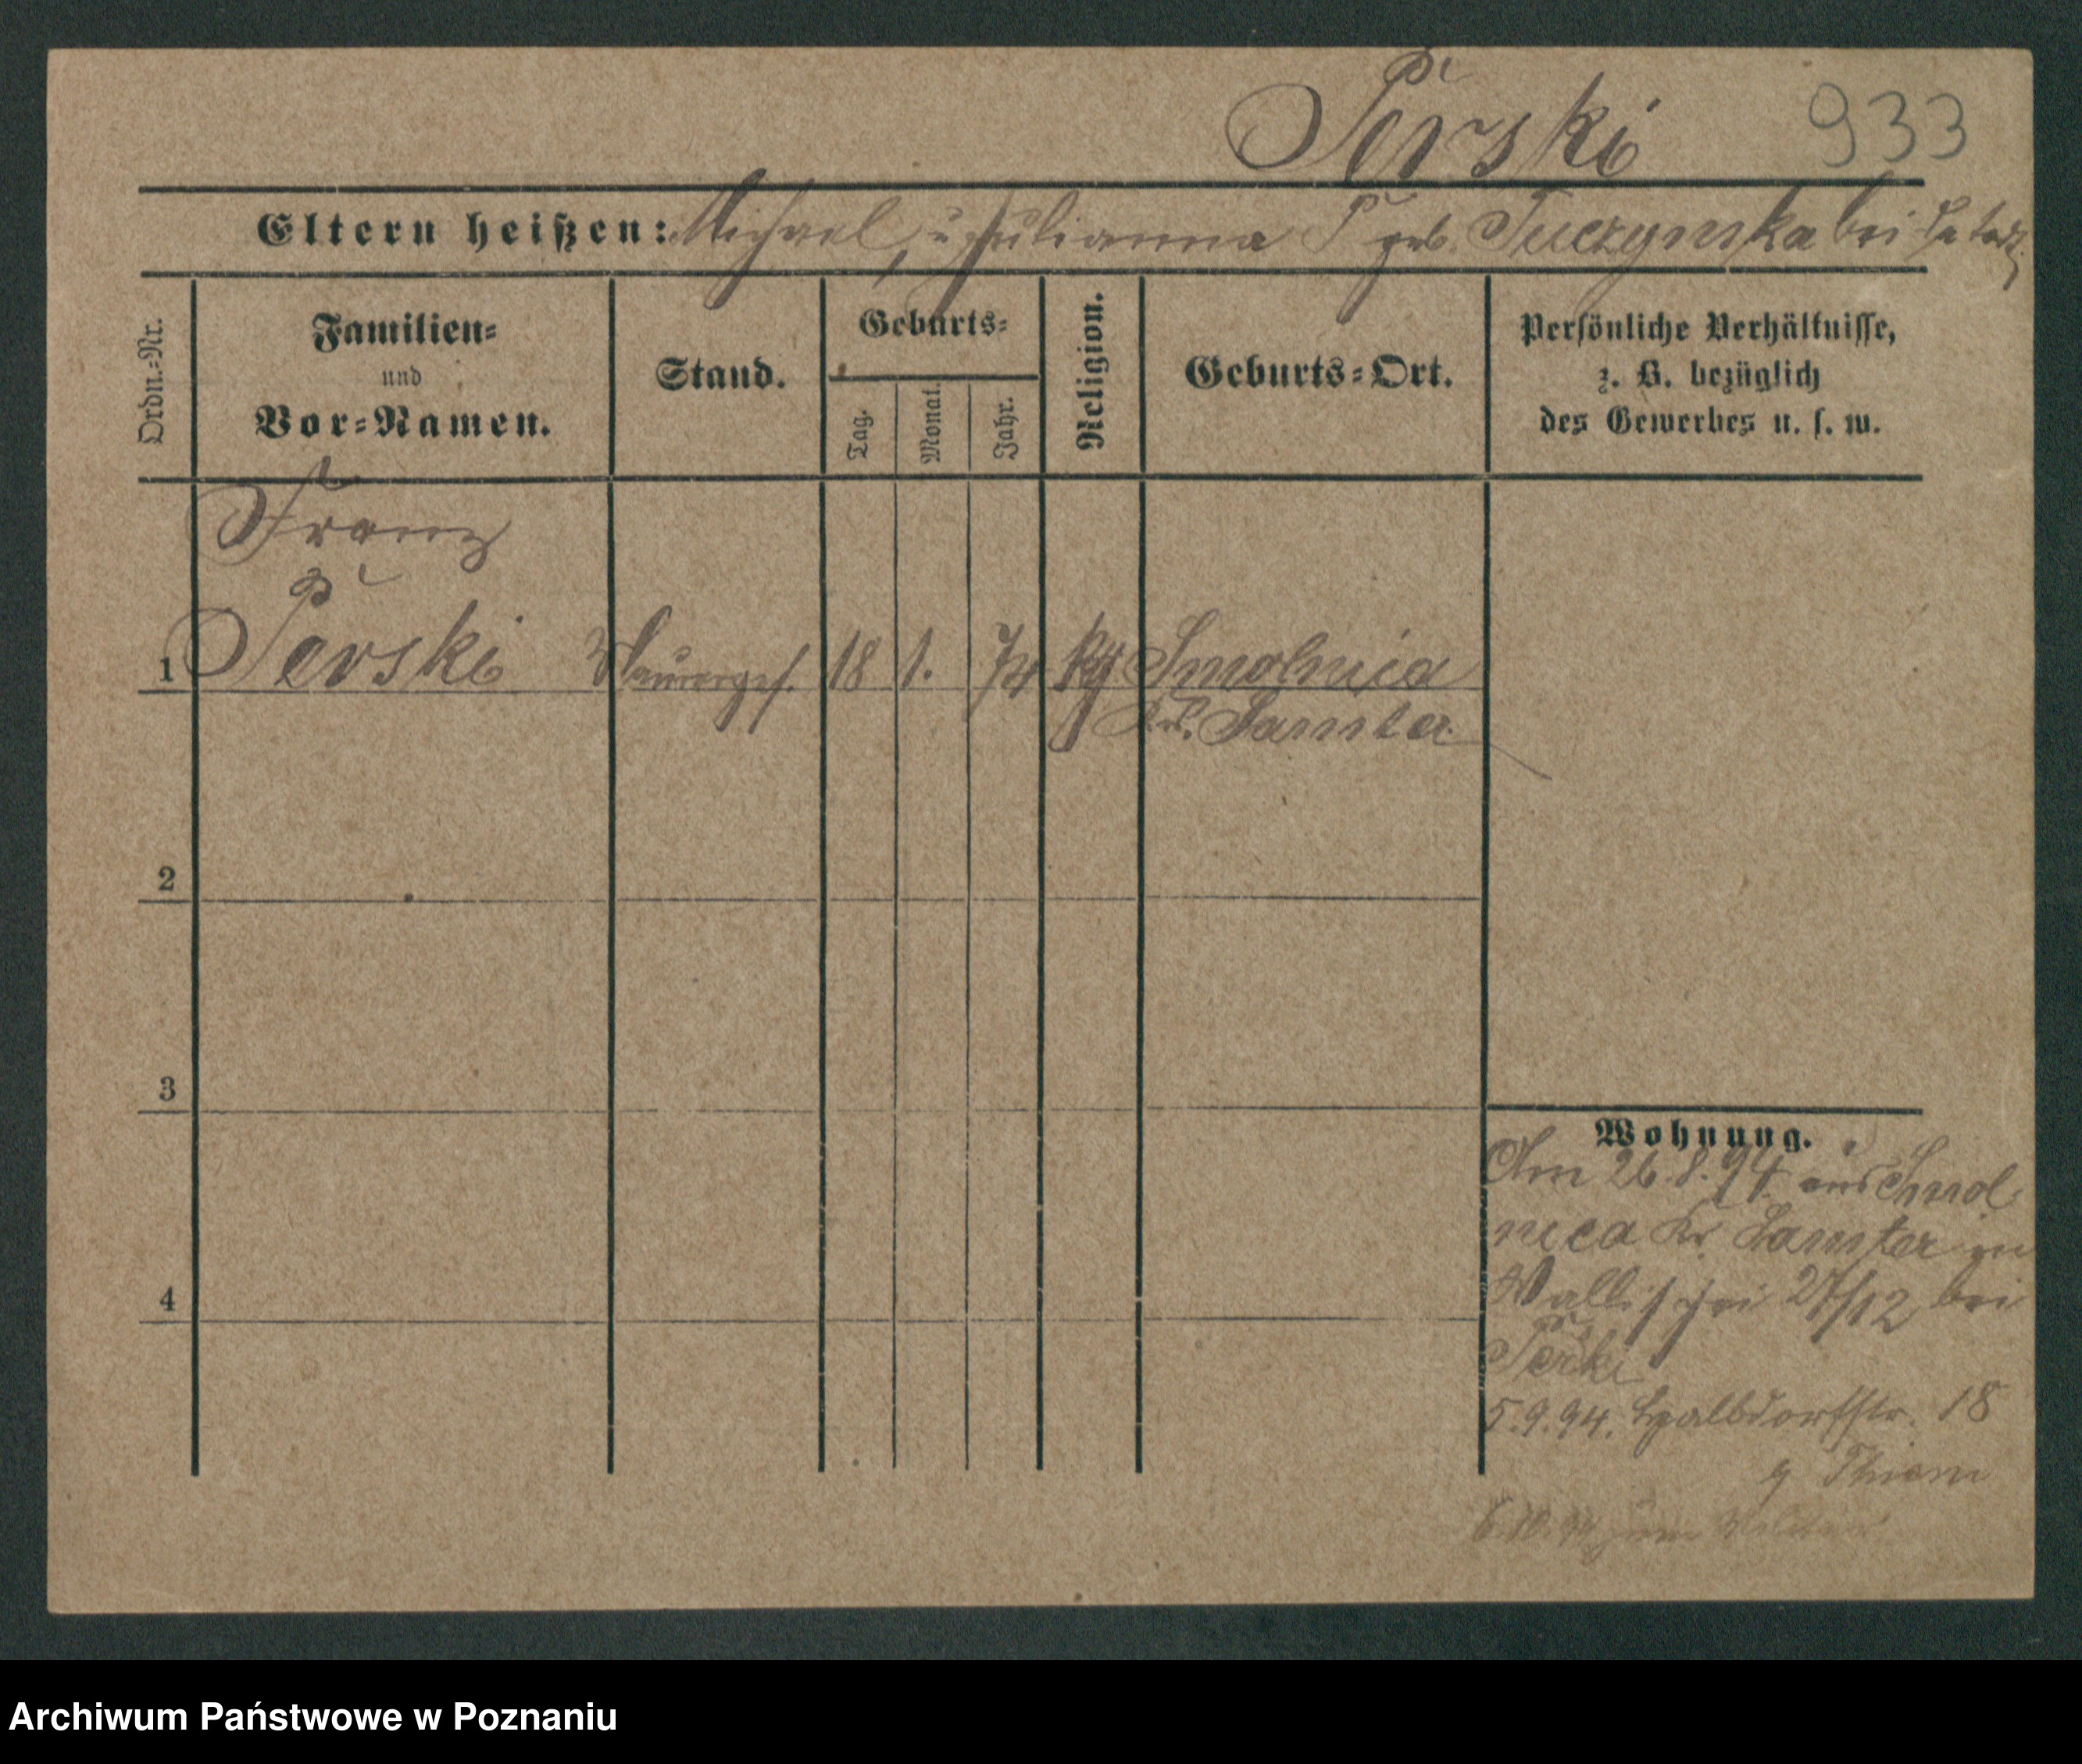 Perski 933
Eltern heißen: Michael, u Julianna P geb. Tuczynska bei
Ordn.=Nr.
Familien=
und
Vor=Namen.
Stand.
Geburts=
Tag.
Monat.
Jahr.
Religion.
Geburts=Ort.
Persönliche Verhältnisse,
z. B. bezüglich
des Gewerbes u. s. w.
Franz
1 Perski Maurerges. 18 1. 74 Smolnica
Krs. Samter
2
3
4
Wohnung.
Am 26.8.94 aus Smol
nica Kr Samter zu
Wallischei 27/12 bei
5.9.94. Halbdorfstr. 18
Thiem
6.10. zum
Archiwum Państwowe w Poznaniu